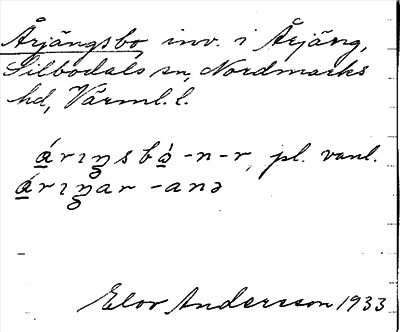 Årjängsbo, inv. i Årjäng,
Silbodals sn, Nordmarks
hd, Värml. l.
á̱rɪŋsbȯ̱ -n -r, pl. vanl.
á̱rɪŋar -anə
Elov Andersson 1933